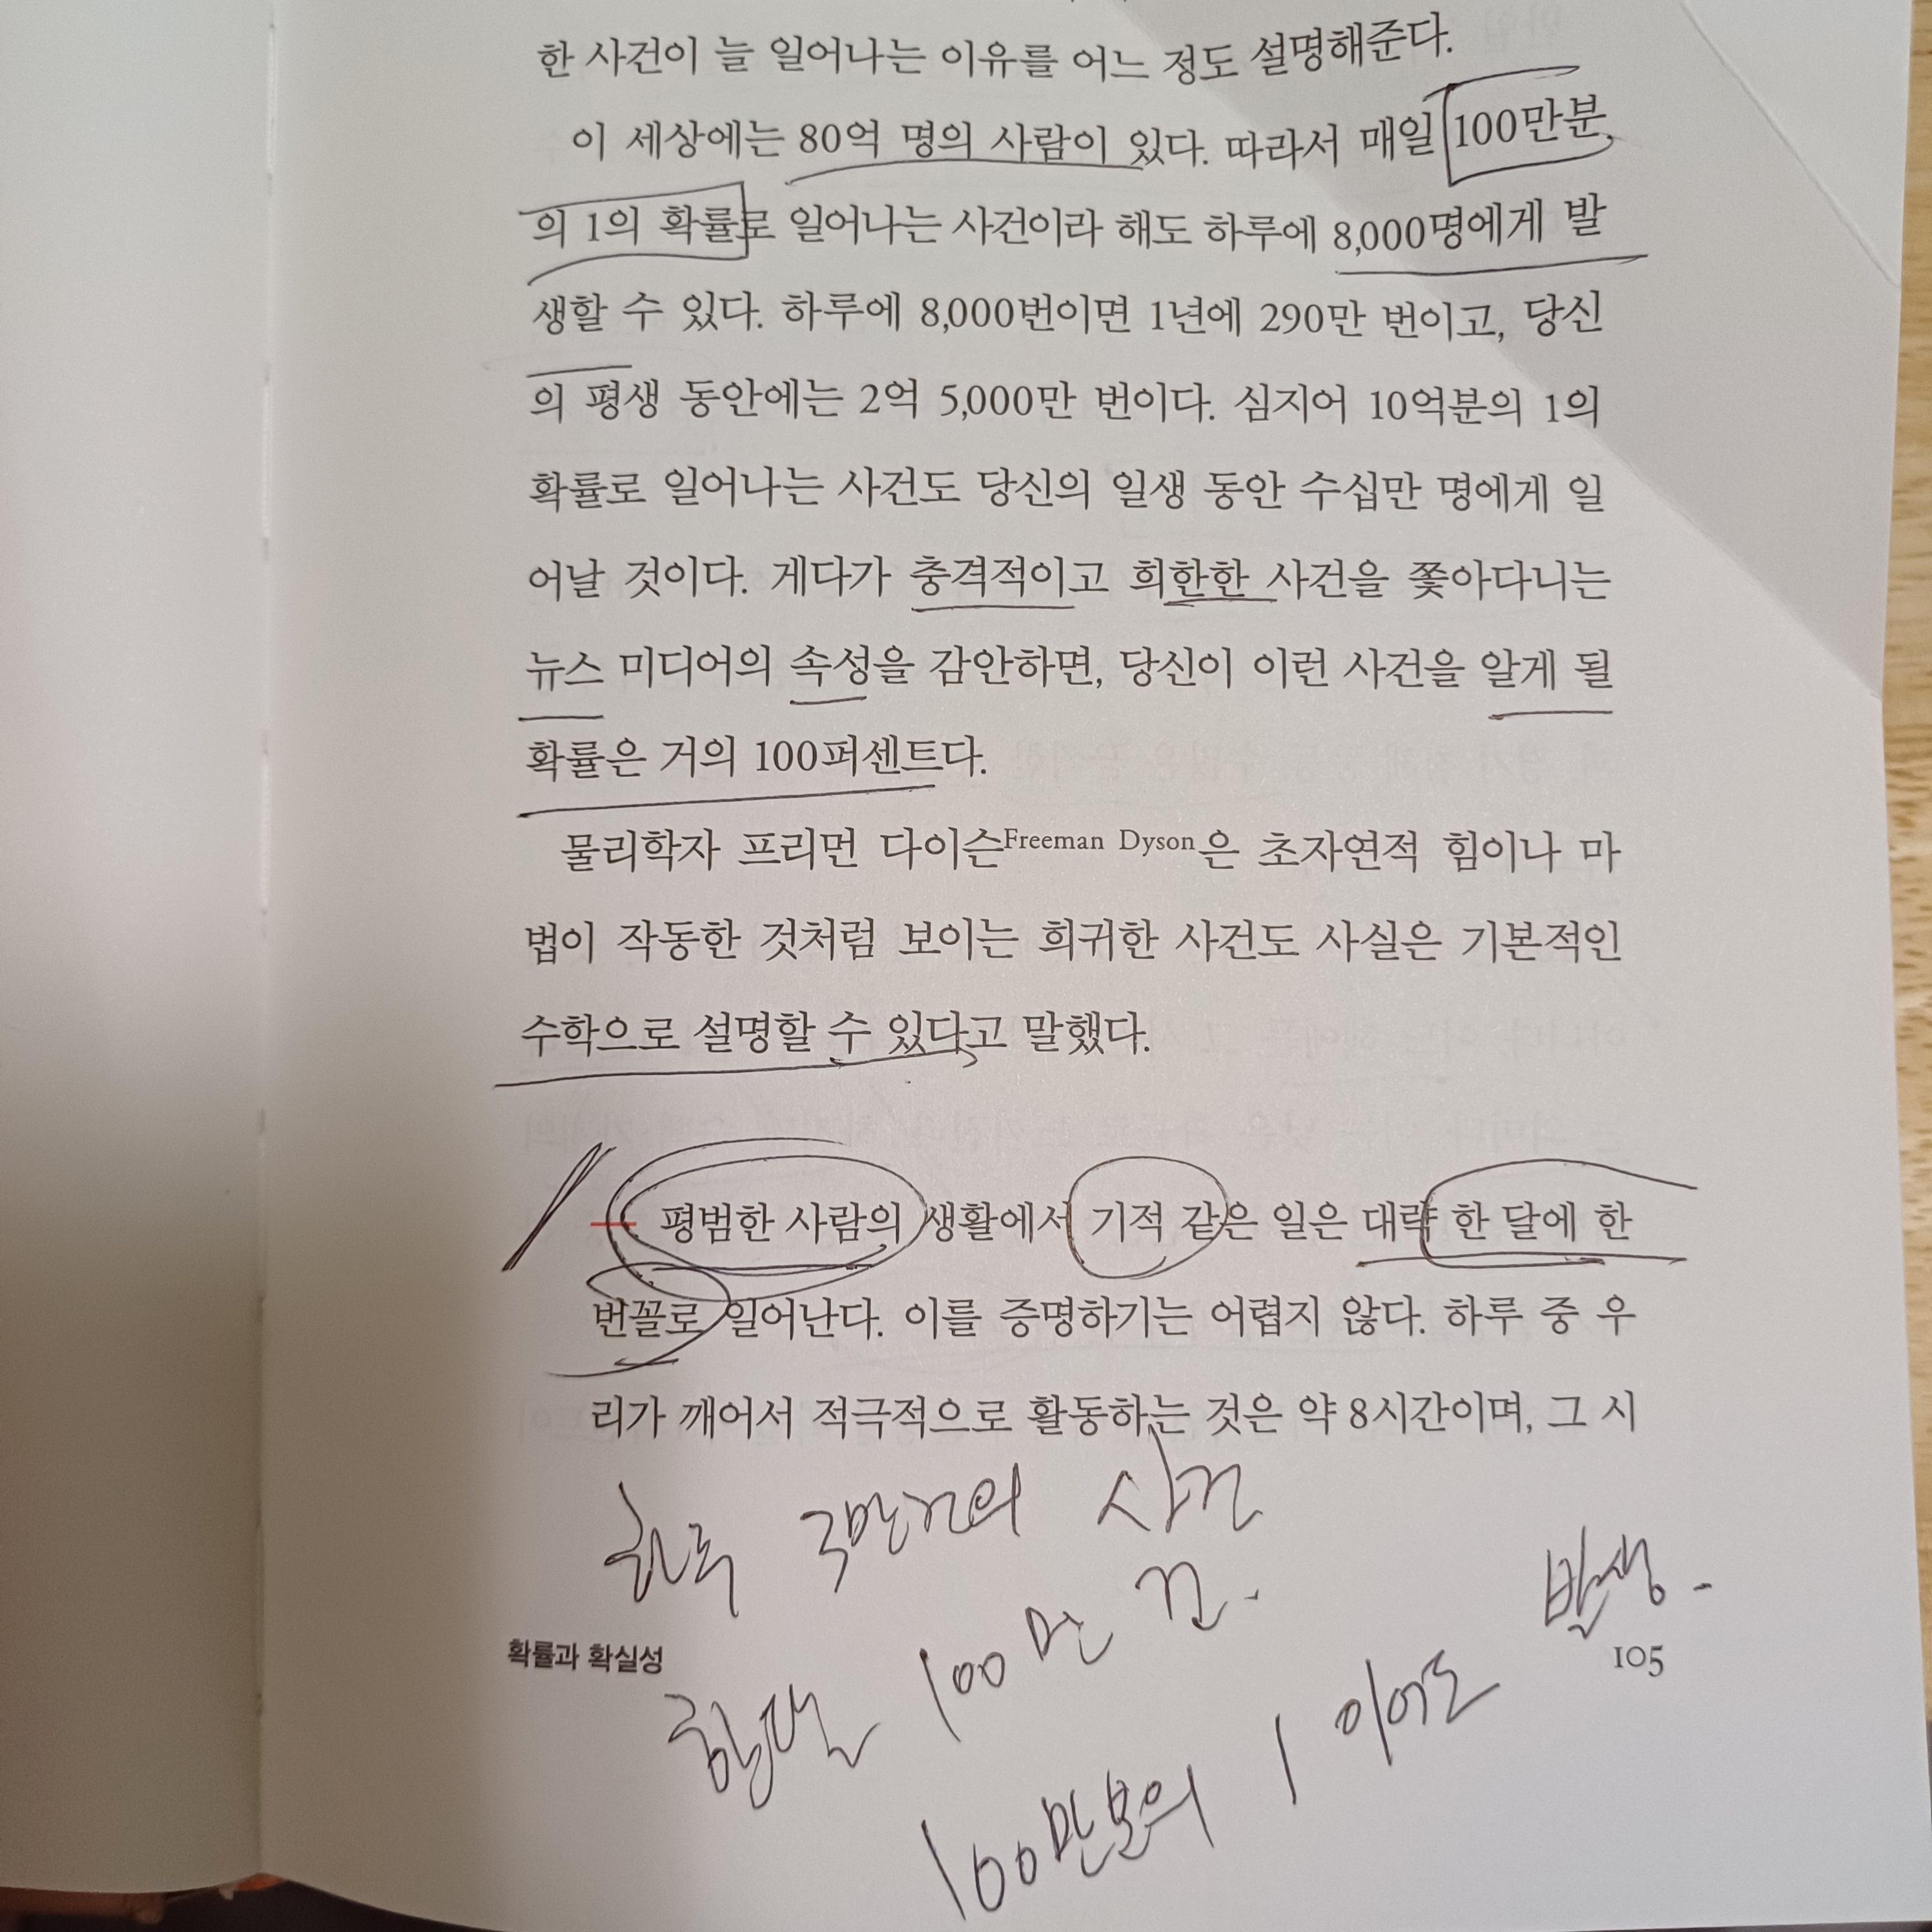 한 사건이 늘 일어나는 이유를 어느 정도 설명해준다.
이 세상에는 80억 명의 사람이 있다. 따라서 매일 100만분
의 1의 확률로 일어나는 사건이라 해도 하루에 8,000명에게 발
생할 수 있다. 하루에 8,000번이면 1년에 290만 번이고, 당신
의 평생 동안에는 2억 5,000만 번이다. 심지어 10억분의 1의
확률로 일어나는 사건도 당신의 일생 동안 수십만 명에게 일
어날 것이다. 게다가 충격적이고 희한한 사건을 쫓아다니는
뉴스 미디어의 속성을 감안하면, 당신이 이런 사건을 알게 될
확률은 거의 100퍼센트다.
물리학자 프리먼 다이슨Freeman Dyson은 초자연적 힘이나 마
법이 작동한 것처럼 보이는 희귀한 사건도 사실은 기본적인
수학으로 설명할 수 있다고 말했다.
평범한 사람의 생활에서 기적 같은 일은 대략 한 달에 한
번꼴로 일어난다. 이를 증명하기는 어렵지 않다. 하루 중 우
리가 깨어서 적극적으로 활동하는 것은 약 8시간이며, 그 시
하루 3만건의 사건
한달 100만 건.
100만분의 1 이어도 발생.
확률과 확실성
105